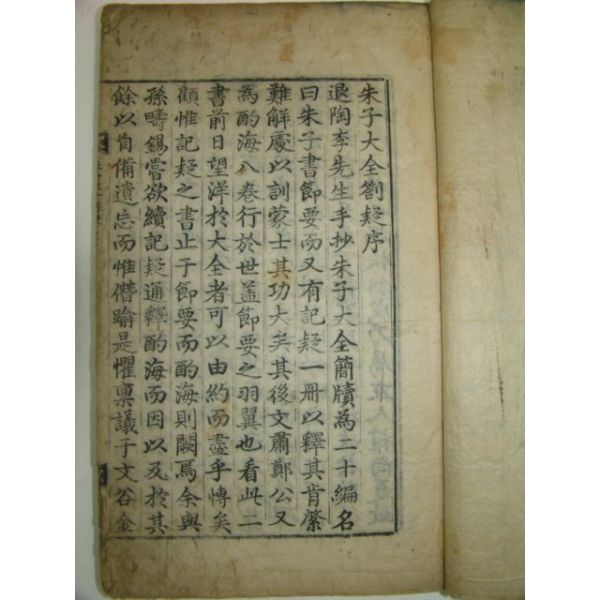 朱子大全劄疑序
退陶李先生手抄朱子大全簡牘為二十編名
曰朱子書節要而又有記疑一冊以釋其肯綮
難解處以訓蒙士其功大矣其後文肅鄭公又
為酌海八卷行於世盖節要之羽翼也看此二
書前日望洋於大全者可以由約而盡乎博矣
顧惟記疑之書止于節要而酌海則闕焉余與
孫疇錫嘗欲續記疑通釋酌海而因以及於其
餘以自備遺忘而惟僭踰是懼稟議于文谷金